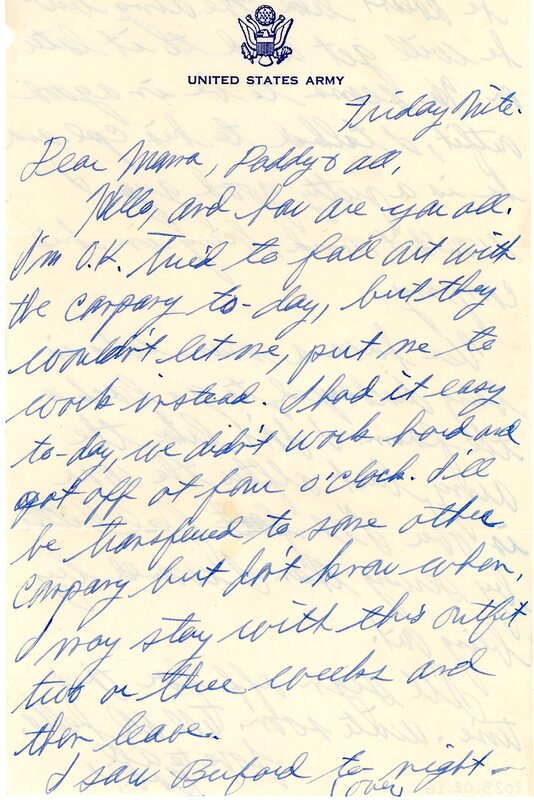 UNITED STATES ARMY
Friday Nite.
Dear Mama, Daddy & all,
Hello, and how are you all.
I'm O.K. Tried to fall out with
the company to-day, but they
wouldn't let me, put me to
work instead. I had it easy
to-day, we didn't work hard and
got off at four o'clock. I'll
be transfered to some other
company but don't know when,
may stay with this outfit
two or three weeks and
then leave.
I saw Buford to-night
(over)
2023.02.16